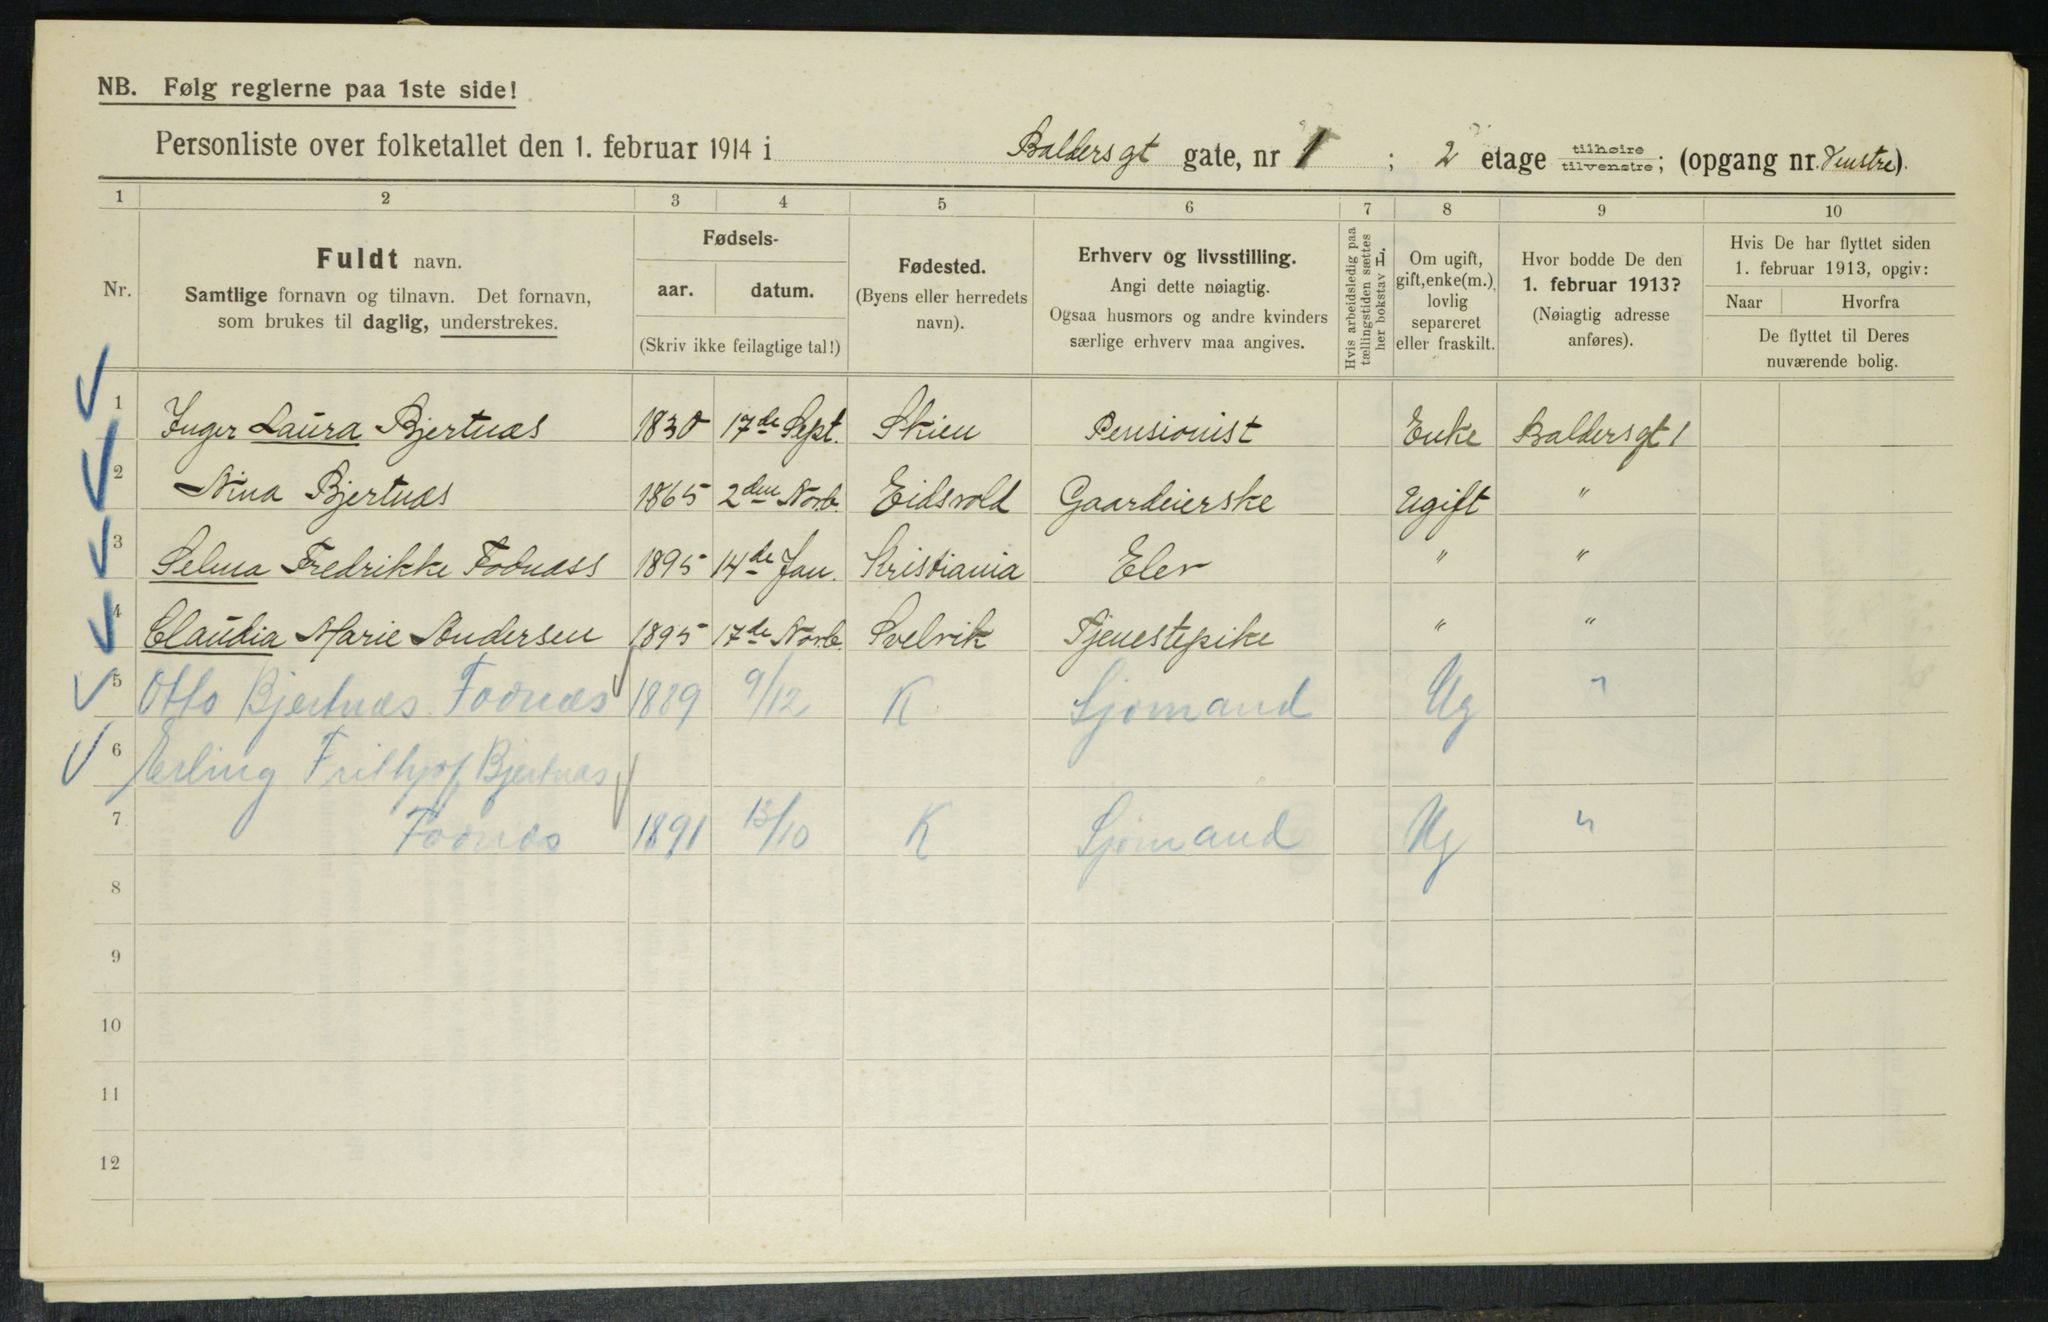 NB. Følg reglerne paa 1ste side!
Personliste over folketallet den 1. februar 1914 i Baldersgt gate, nr 1 ; 2 etage tilhøire tilvenstre; (opgang nr. Venstre).
1 2 3 4 5 6 7 8 9 10
Nr.
Fuldt navn.
Samtlige fornavn og tilnavn. Det fornavn,
som brukes til daglig, understrekes.
Fødsels-
aar. datum.
(Skriv ikke feilagtige tal!)
Fødested.
(Byens eller herredets
navn).
Erhverv og livsstilling.
Angi dette nøiagtig.
Ogsaa husmors og andre kvinders
særlige erhverv maa angives.
Hvis arbeidsledig paa
tællingstiden sættes
her bokstav L.
Om ugift,
gift, enke(m.),
lovlig
separeret
eller fraskilt.
Hvor bodde De den
1. februar 1913?
(Nøiagtig adresse
anføres).
Hvis De har flyttet siden
1. februar 1913, opgiv:
Naar Hvorfra
De flyttet til Deres
nuværende bolig.
1 Inger Laura Bjertnæs 1830 17de Sept. Skien Pensionist Enke Baldersgt 1
2 Nina Bjertnæs 1865 2den Novb. Eidsvold Gaardeierske Ugift "
3 Selma Fredrikke Fodnæss 1895 14de Jan. Kristiania Elev " "
4 Claudia Marie Andersen 1895 17de Novb. Svelvik Tjenestepike " "
5 Otto Bjertnæs Fodnæs 1889 9/12 K Sjømand Ug "
6 Erling Frithjof Bjertnæs
7 Fodnæs 1891 13/10 K Sjømand Ug "
8
9
10
11
12